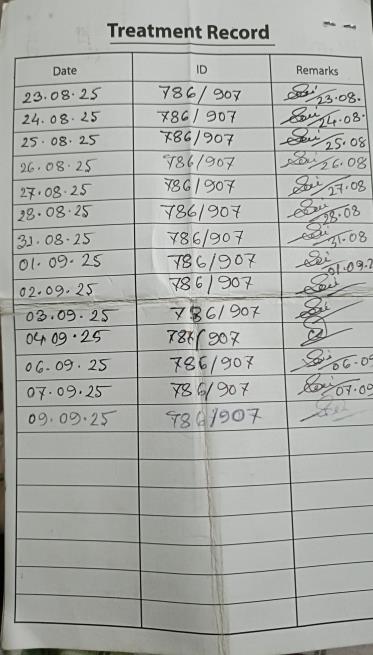 Treatment Record
Date ID Remarks
23.08.25 786/907 23.08.
24.08.25 786/907 24.08.
25.08.25 786/907 25.08
26.08.25 786/907 26.08
27.08.25 786/907 27.08
28.08.25 786/907 28.08
31.08.25 786/907 31.08
01.09.25 786/907 01.09.2
02.09.25 786/907
03.09.25 786/907
04.09.25 786/907
06.09.25 786/907 06.09
07.09.25 786/907 07.09
09.09.25 786/907